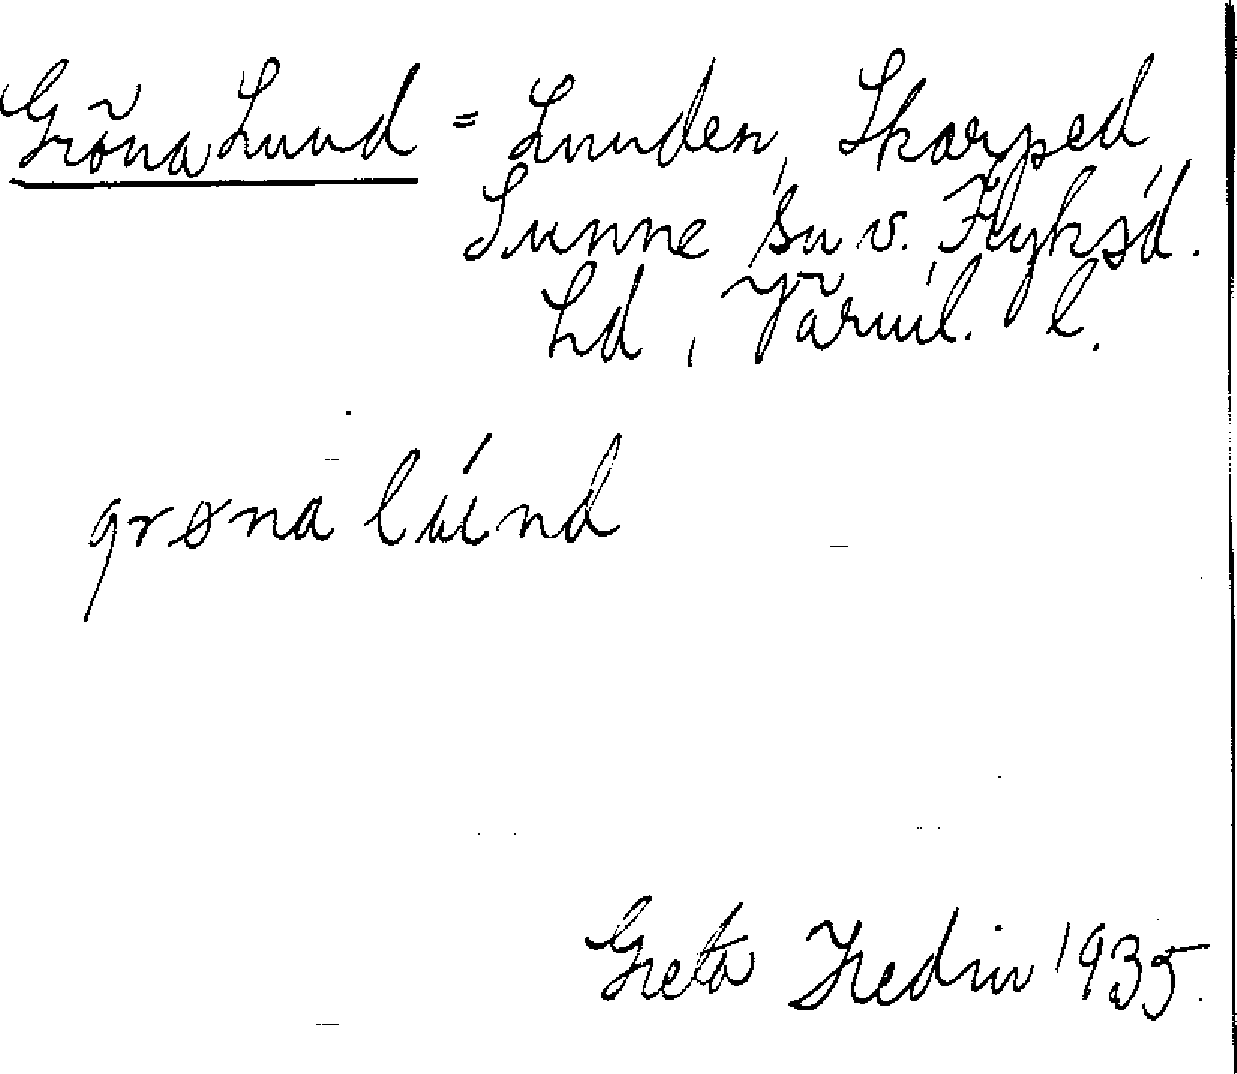 Gröna Lund = Lunden, Skarped
Sunne sn v. Fryksd.
hd, Värml. l.
grøna lúnd
Greta Hedin 1935.